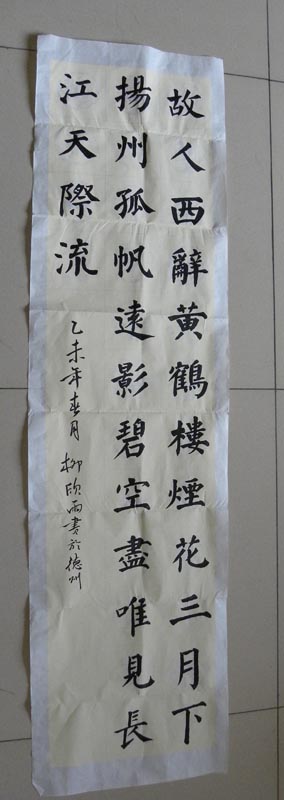 故人西辭黃鶴樓煙花三月下
揚州孤帆遠影碧空盡唯見長
江天際流
乙未年春月柳欣雨書於德州